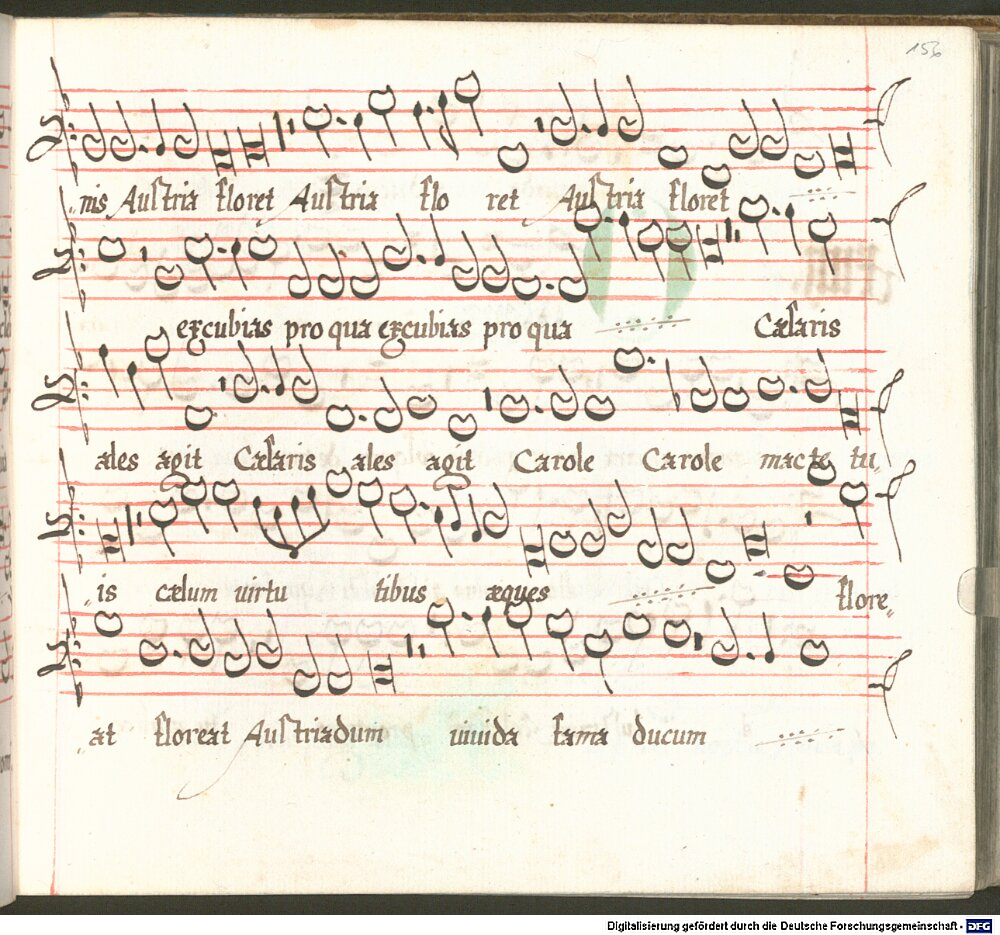 156
nis Auſtria floret Auſtria flo ret Auſtria floret
excubias pro qua excubias pro qua Cæſaris
ales agit Cæſaris ales agit Carole Carole macte tu„
„is cælum uirtu tibus æques flore„
„at floreat Auſtriadum uiuida fama ducum
Digitalisierung gefördert durch die Deutsche Forschungsgemeinschaft - DFG